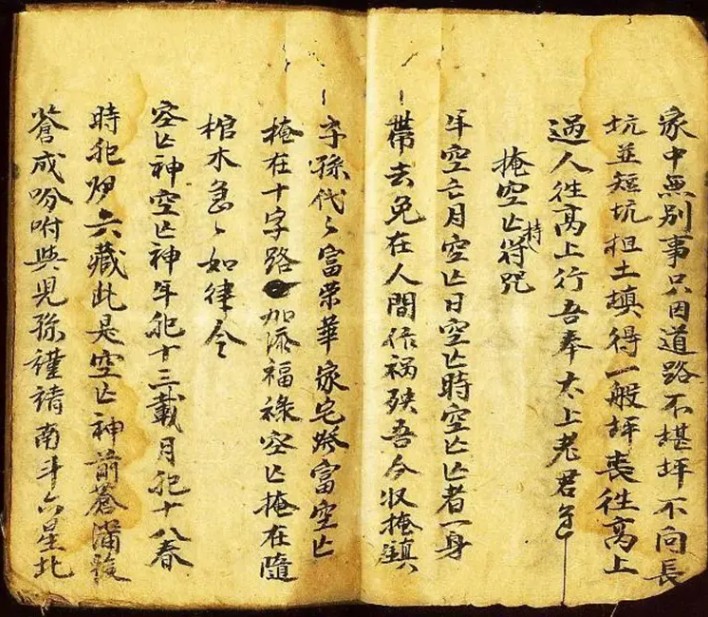 家中無別事只因道路不堪坪不向長
坑並短坑担土填得一般坪喪往高上
過人往高上行吾奉太上老君
掩空亡符持咒
年空亡月空亡日空亡時空亡亡者一身
帶去免在人間作禍殃吾今收掩鎮
子孫代〻富榮華家宅富空亡
掩在十字路加添福祿空亡掩在隨
棺木急〻如律令
空亡神空亡神年犯十三載月犯十八春
時犯六藏此是空亡神前蒼滿
蒼成吩咐與児孫謹請南斗六星北